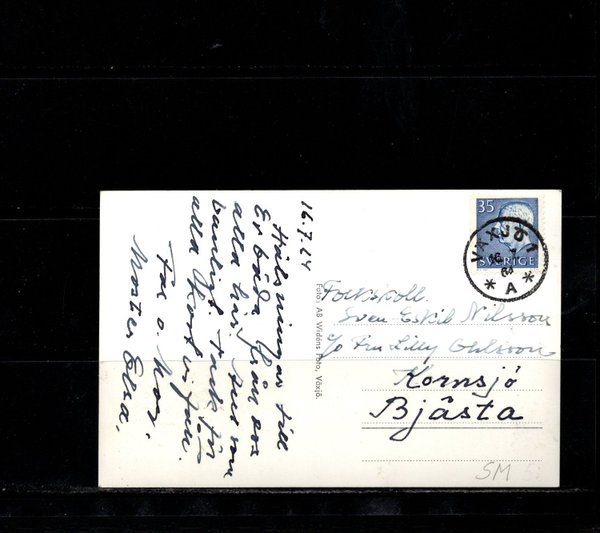 16.7.64
Hälsningar till
Er båda från oss
alla här. Allt som
vanligt tack för
alla kort vi fått.
Far o Mor.
Moster Elsa.
Foto: AB Widéns Foto, Växjö.
35
SVERIGE
VÄXJÖ 1
16 7 64
* A *
Folkskoll.
Sven Eskil Nilsson
c/o Fru Lilly Ohlsson
Kornsjö
Bjästa
SM